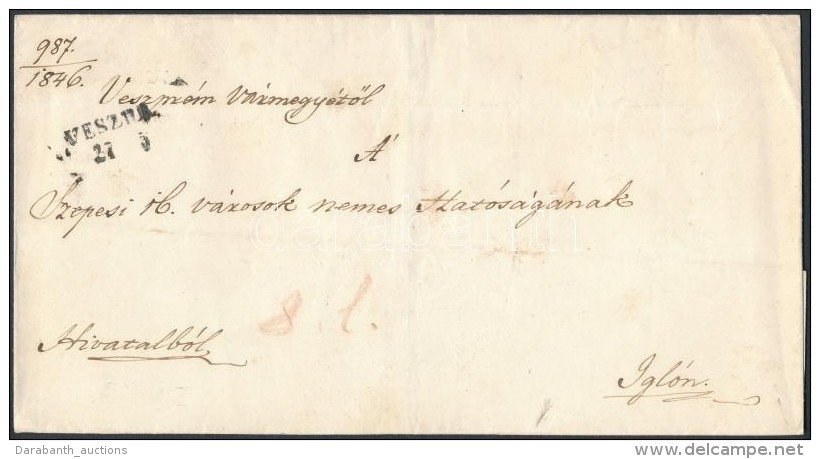 987.
1846.
Veszprém Vármegyétől
VESZPR.
27 5
A'
Szepesi 16. városok nemes Hatóságának
darabanth
8 l.
Hivatalból,
Iglón.
Darabanth_auctions
delcampe.net